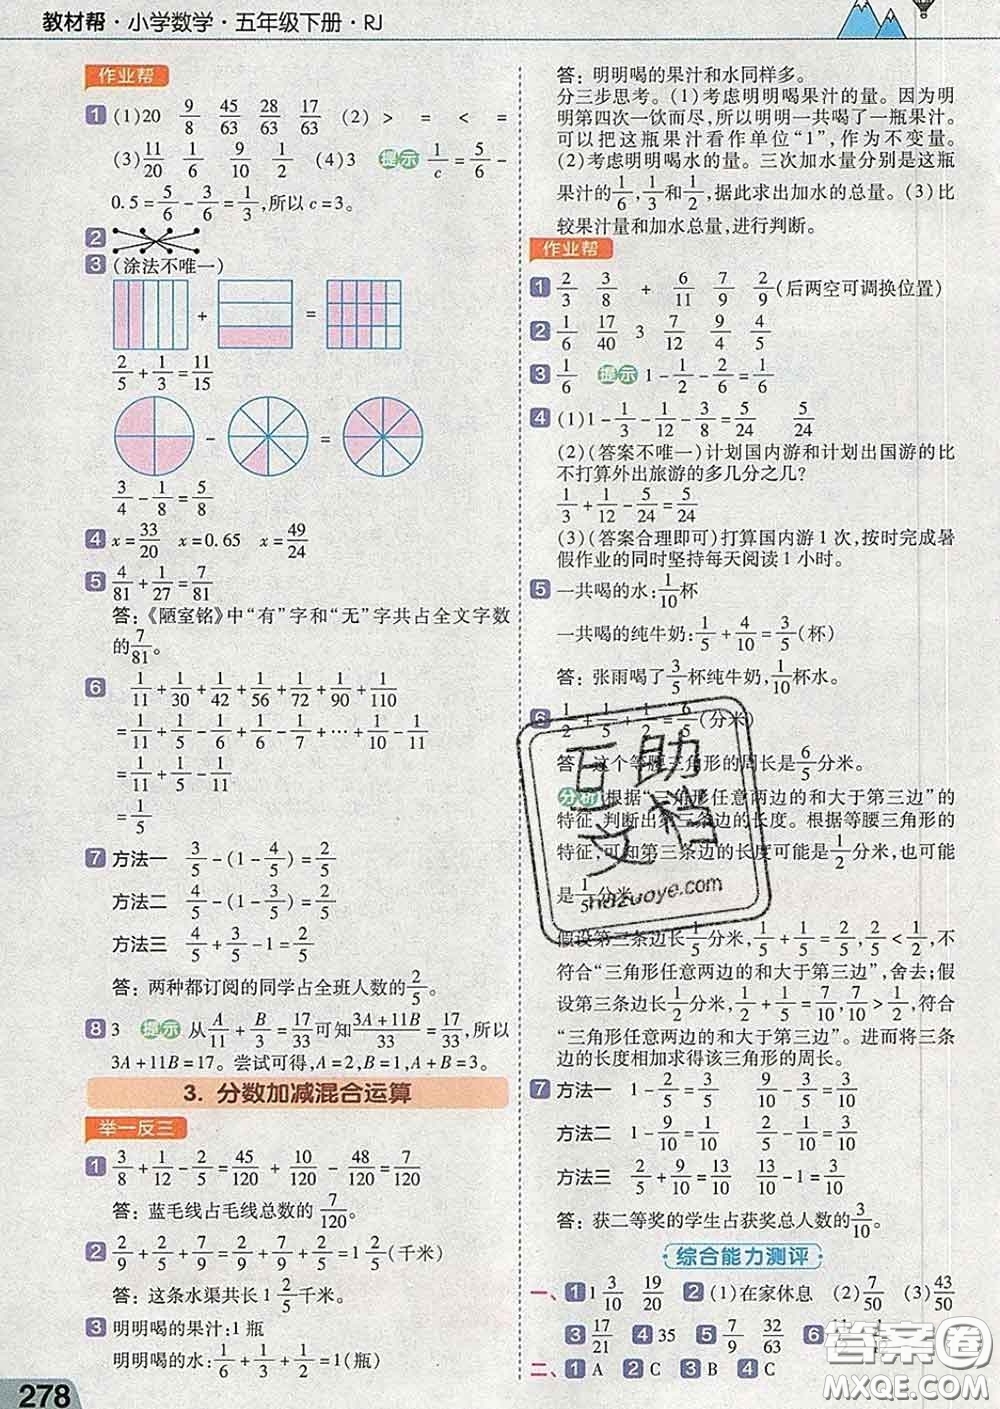 教材帮·小学数学·五年级下册·RJ
作业帮
1 (1)20 9/8 45/63 28/63 17/63 (2) > = < =
(3)11/20 1/20 9/10 1/10 (4)3 提示 1/c=5/6-
0.5=5/6-3/6=1/3,所以c=3。
2
3 (涂法不唯一)
+ =
2/5+1/3=11/15
- =
3/4-1/8=5/8
4 x=33/20 x=0.65 x=49/24
5 4/81+1/27=7/81
答:《陋室铭》中“有”字和“无”字共占全文字数
的7/81。
6 1/11+1/30+1/42+1/56+1/72+1/90+1/110
=1/11+1/5-1/6+1/6-1/7+…+1/10-1/11
=1/11+1/5-1/11
=1/5
7 方法一 3/5-(1-4/5)=2/5
方法二 4/5-(1-3/5)=2/5
方法三 4/5+3/5-1=2/5
答:两种都订阅的同学占全班人数的2/5。
8 3 提示 从A/11+B/3=17/33可知3A+11B/33=17/33,所以
3A+11B=17。尝试可得,A=2,B=1,A+B=3。
3. 分数加减混合运算
举一反三
1 3/8+1/12-2/5=45/120+10/120-48/120=7/120
答:蓝毛线占毛线总数的7/120。
2 2/9+2/5+7/9=2/9+7/9+2/5=1 2/5(千米)
答:这条水渠共长1 2/5千米。
3 明明喝的果汁:1瓶
明明喝的水:1/6+1/3+1/2=1(瓶)
278
答:明明喝的果汁和水同样多。
分三步思考。(1)考虑明明喝果汁的量。因为明
明第四次一饮而尽,所以明明一共喝了一瓶果汁。
可以把这瓶果汁看作单位“1”,作为不变量。
(2)考虑明明喝水的量。三次加水量分别是这瓶
果汁的1/6,1/3和1/2,据此求出加水的总量。(3)比
较果汁量和加水总量,进行判断。
作业帮
1 2/3 3/8 + 6/11 7/9 2/9(后两空可调换位置)
2 1/6 17/40 3 7/12 9/4 4/5
3 1/6 提示 1-1/2-2/6=1/6
4 (1)1-1/3-1/12-3/8=5/24 5/24
(2)(答案不唯一)计划国内游和计划出国游的比
不打算外出旅游的多几分之几?
1/3+1/12-5/24=5/24
(3)(答案合理即可)打算国内游1次,按时完成暑
假作业的同时坚持每天阅读1小时。
5 一共喝的水:1/10杯
一共喝的纯牛奶:1/5+4/10=3/5(杯)
答:张雨喝了3/5杯纯牛奶,1/10杯水。
6 1/2+1/5+1/2=6/5(分米)
答:这个等腰三角形的周长是6/5分米。
分析 根据“三角形任意两边的和大于第三边”的
特征,判断出第三条边的长度。根据等腰三角形的
特征,可知第三条边的长度可能是1/2分米,也可能
是1/5分米。
假设第三条边长1/5分米,1/5+1/5=2/5,2/5<1/2,不
符合“三角形任意两边的和大于第三边”,舍去;假
设第三条边长1/2分米,1/2+1/5=7/10,7/10>1/2,符合
“三角形任意两边的和大于第三边”。进而将三条
边的长度相加求得该三角形的周长。
7 方法一 1-2/5=3/5 9/10-3/5=3/10
方法二 1-9/10=1/10 2/5-1/10=3/10
方法三 2/5+9/10=13/10 13/10-1=3/10
答:获二等奖的学生占获奖总人数的3/10。
综合能力测评
一、1 1 3/10 19/20 2 (1)在家休息 (2)7/50 (3)43/50
3 17/21 4 35 5 7/9 32/63 6
二、1 A 2 C 3 B 4 C
互助
文档
hdzuoye.com
答案圈
MXQE.COM